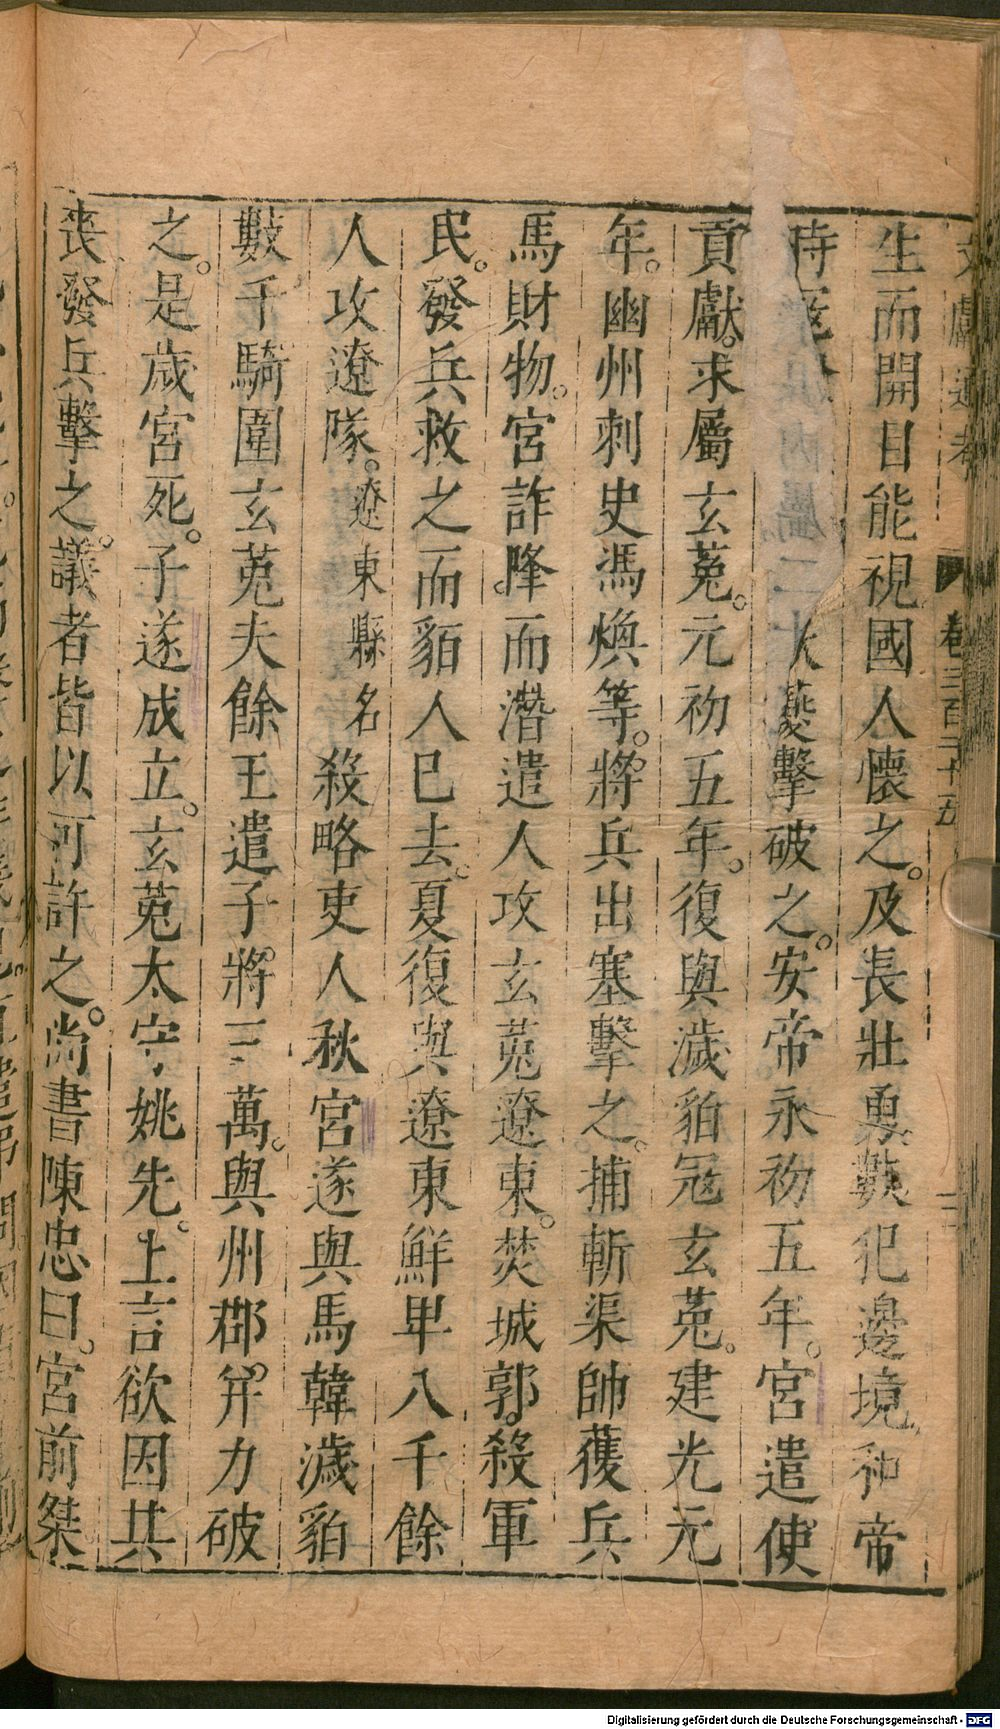 文獻通考 卷三百二十五 二
生而開目能視國人懷之。及長壯勇。數犯邊境和帝
時 大 擊破之。安帝永初五年。宮遣使
貢獻。求屬玄菟。元初五年。復與濊貊冦玄菟。建光元
年。幽州刺史馮煥等。將兵出塞擊之。捕斬渠帥獲兵
馬財物。宮詐降。而潛遣人攻玄菟遼東。焚城郭。殺軍
民。發兵救之而貊人已去。夏復與遼東鮮卑八千餘
人攻遼隊。遼東縣名殺略吏人秋宮遂與馬韓濊貊
數千騎圍玄菟夫餘王遣子。將三萬。與州郡。并力破
之。是歲宮死。子遂成立。玄菟太守姚先。上言欲因其
喪發兵擊之。議者皆以可許之。尚書陳忠曰。宮前桀
Digitalisierung gefördert durch die Deutsche Forschungsgemeinschaft - DFG